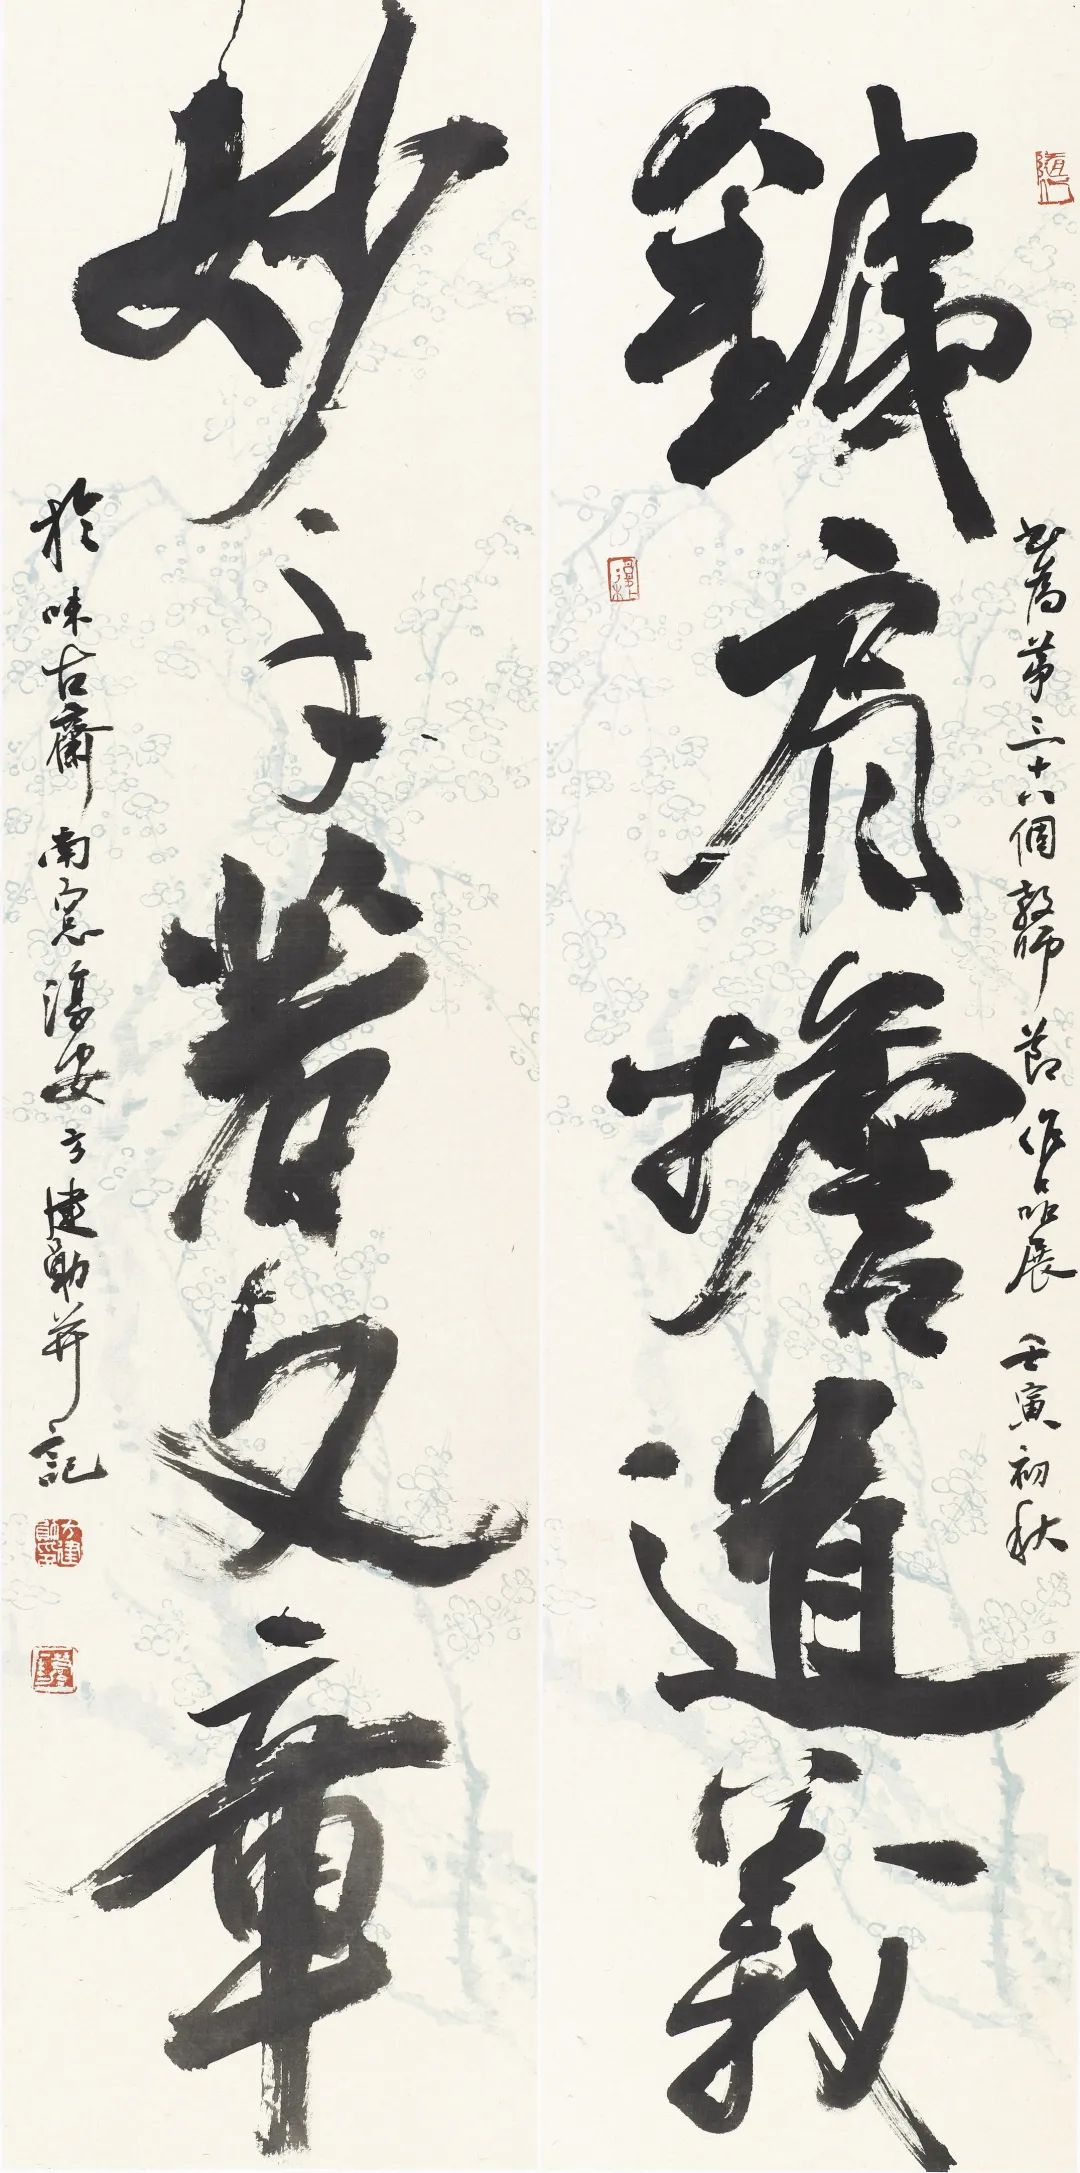 鐵肩擔道義
書為第三十八個教師節作品展 壬寅初秋
妙手著文章
於味古齋南窗淳安方建勛并記